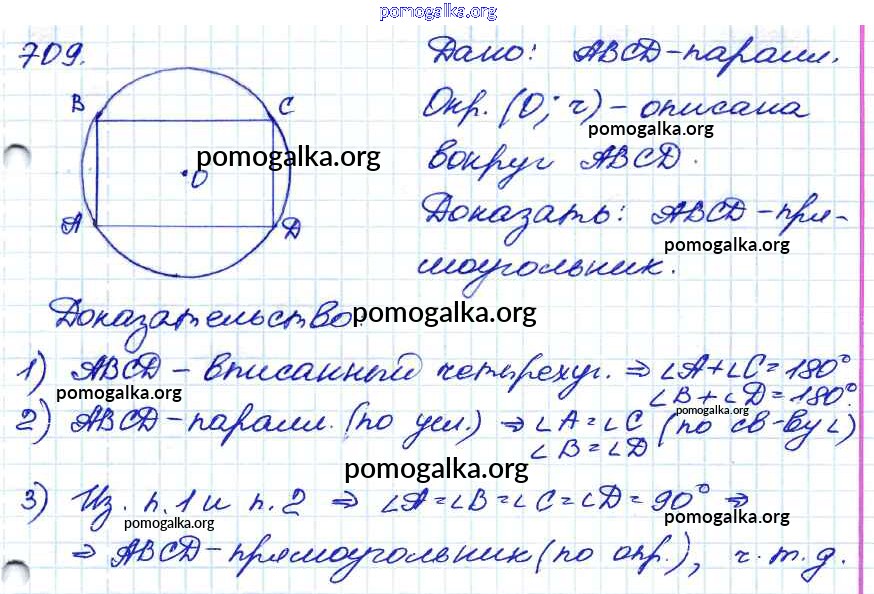 pomogalka.org
709.
B C
O
A D
pomogalka.org
Дано: ABCD-паралл.
Окр. (O; r) - описана
pomogalka.org
вокруг ABCD.
Доказать: ABCD-пря-
pomogalka.org
моугольник.
Доказательство:
pomogalka.org
1) ABCD - вписанный четырехуг. ⇒ ∠A+∠C=180°
∠B+∠D=180°.
pomogalka.org
pomogalka.org
2) ABCD-паралл. (по усл.) ⇒ ∠A=∠C (по св-ву ∠)
∠B=∠D
pomogalka.org
3) Из п.1 и п.2 ⇒ ∠A=∠B=∠C=∠D=90° ⇒
pomogalka.org
pomogalka.org
⇒ ABCD-прямоугольник (по опр.), ч.т.д.